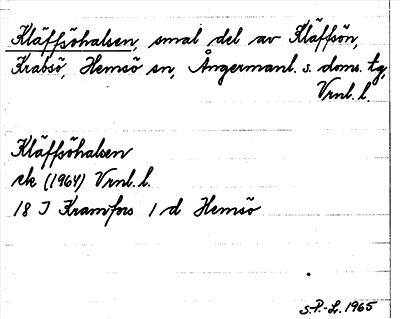 Kläffsöhalsen, smal del av Kläffsön,
Krabsö, Hemsö sn, Ångermanl. s. doms. tg,
Vrnl. l.
Kläffsöhalsen
ek (1964) Vrnl. l.
18 J Kramfors 1 d Hemsö
S.P.-L. 1965